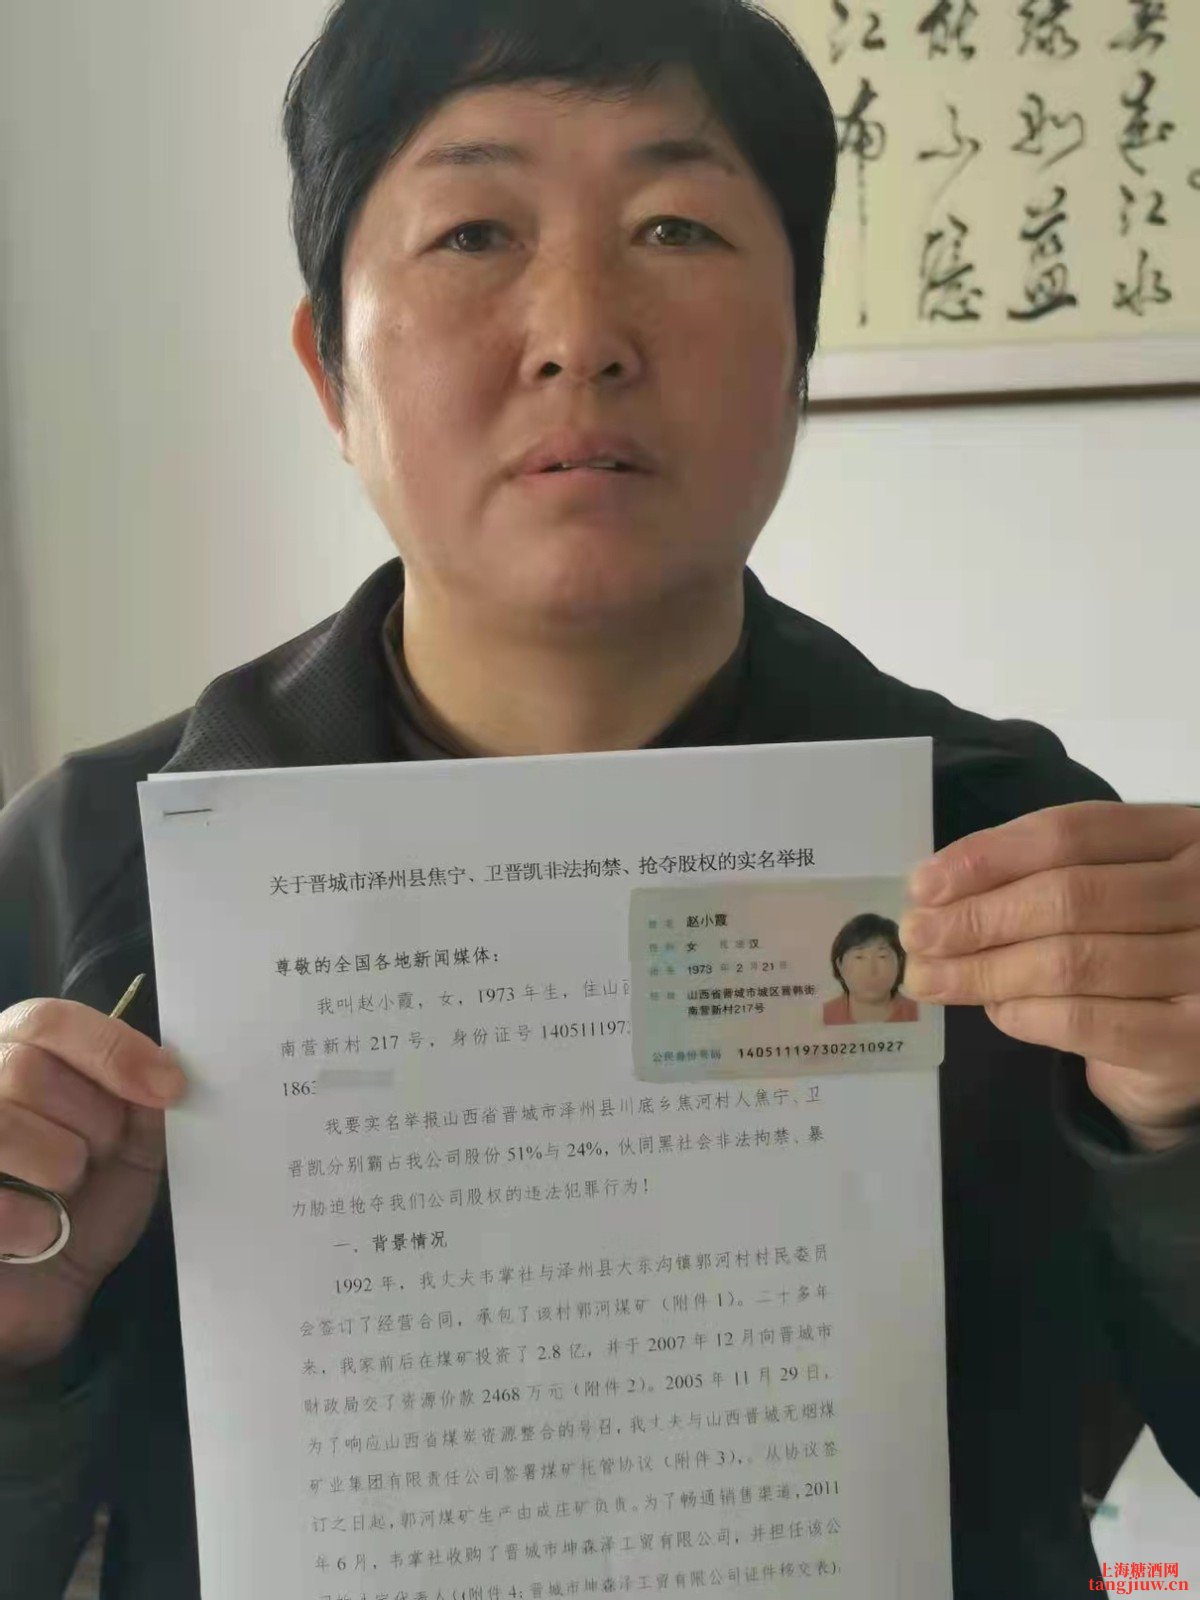 江水
绿如蓝
能不忆
江南
关于晋城市泽州县焦宁、卫晋凯非法拘禁、抢夺股权的实名举报
尊敬的全国各地新闻媒体：
我叫赵小霞，女，1973 年生，住山西
南营新村 217 号，身份证号 140511197
186
我要实名举报山西省晋城市泽州县川底乡焦河村人焦宁、卫
晋凯分别霸占我公司股份 51%与 24%，伙同黑社会非法拘禁、暴
力胁迫抢夺我们公司股权的违法犯罪行为！
一、背景情况
1992 年，我丈夫韦掌社与泽州县大东沟镇郭河村村民委员
会签订了经营合同，承包了该村郭河煤矿（附件 1）。二十多年
来，我家前后在煤矿投资了 2.8 亿，并于 2007 年 12 月向晋城市
财政局交了资源价款 2468 万元（附件 2）。2005 年 11 月 29 日，
为了响应山西省煤炭资源整合的号召，我丈夫与山西晋城无烟煤
矿业集团有限责任公司签署煤矿托管协议（附件 3），。从协议签
订之日起，郭河煤矿生产由成庄矿负责。为了畅通销售渠道，2011
年 6 月，韦掌社收购了晋城市坤森泽工贸有限公司，并担任该公
司法定代表人（（附件 4：晋城市坤森泽工贸有限公司证件移交表）；
姓名 赵小霞
性别 女 民族 汉
出生 1973 年 2 月 21 日
住址 山西省晋城市城区晋韩街
南营新村217号
公民身份号码 140511197302210927
上海糖酒网
tangjiuw.cn